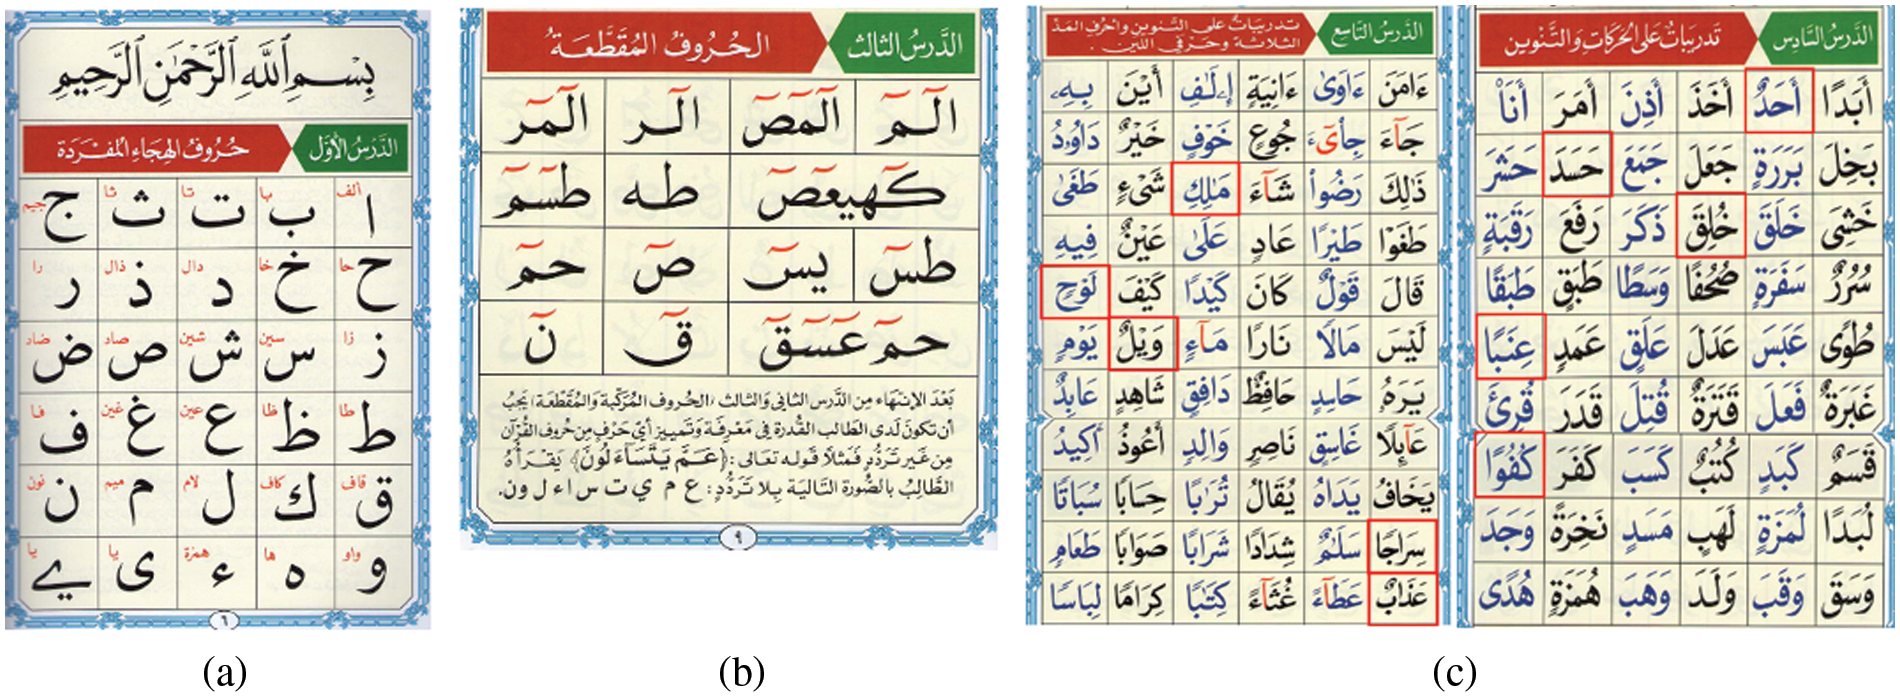 بِسْمِ ٱللَّهِ ٱلرَّحْمَٰنِ ٱلرَّحِيمِ
الدَّرسُ الأوَّل حُرُوفُ الهِجَاءِ المُفْرَدَة
ألف با تا ثا جيم
ا ب ت ث ج
حا خا دال ذال را
ح خ د ذ ر
زا سين شين صاد ضاد
ز س ش ص ض
طا ظا عين غين فا
ط ظ ع غ ف
قاف كاف لام ميم نون
ق ك ل م ن
واو ها همزة يا يا
و ه ء ى ے
٦
(a)
الدَّرسُ الثالث الحُرُوفُ المُقَطَّعَةُ
الٓمٓ الٓمٓصٓ الٓر الٓمٓر
كٓهيعٓصٓ طه طسٓمٓ
طسٓ يسٓ صٓ حمٓ
حمٓ عٓسٓقٓ قٓ نٓ
بَعْدَ الاِنتِهَاء مِن الدَّرسِ الثَّانِي وَالثالث (الحُروف المُرَكَّبة وَالمُقَطَّعَة) يَجبُ
أن تكونَ لَدى الطَّالب القُدرة فِي مَعْرِفَة وَتَمييز أيّ حَرْفٍ مِن حُروف القُرْآن
مِن غَير تَردُّدٍ فَمثلًا قَوله تَعالى: ﴿عَمَّ يَتَسَآءَلُونَ﴾ يَقرَأهُ
الطَّالِبُ بالصُّورة التَّالية بِلا تَردُّدٍ: ع م ي ت س ا ء ل و ن.
٩
(b)
الدَّرسُ التَّاسِع تَدريبَاتٌ عَلى التَّنوين وَأحْرُف المَدّ
الثلاثة وَحَرفَي اللين .
ءَامَنَ ءَاوَىٰ ءَانِيَةٍ إِۦلَٰفِ أَيْنَ بِهِۦ
جَآءَ جِاْىٓءَ جُوعٍ خَوْفٍ خَيْرٌ دَاوُۥدُ
ذَٰلِكَ رَضُواْ شَآءَ مَٰلِكِ شَىْءٍ طَغَىٰ
طَغَوْا طَيْرًا عَادٍ عَلَىٰ عَيْنٌ فِيهِ
قَالَ قَوْلٌ كَانَ كَيْدًا كَيْفَ لَوْحٍ
لَيْسَ مَالًا نَارًا مَآءٍ وَيْلٌ يَوْمٍ
يَرَهُۥ حَاسِدٍ حَافِظٌ دَافِقٍ شَاهِدٍ عَابِدٌ
عَآئِلًا غَاسِقٍ نَاصِرٍ وَالِدٍ أَعُوذُ أَكِيدُ
يَخَافُ يَدَاهُ يُقَالُ تُرَٰبًا حِسَابًا سُبَاتًا
سِرَاجًا سَلَٰمٌ شِدَادًا شَرَابًا صَوَابًا طَعَامٍ
عَذَابٌ عَطَآءً غُثَآءً كِتَٰبًا كِرَامًا لِبَاسًا
الدَّرسُ السَّادِس تَدريبَاتٌ عَلى الحَرَكَاتِ وَالتَّنْوِين
أَبَدًا أَحَدٌ أَخَذَ أَذِنَ أَمَرَ أَنَا۠
بَخِلَ بَرَرَةٍ جَعَلَ جَمَعَ حَسَدَ حَشَرَ
خَشِىَ خَلَقَ خُلِقَ ذَكَرَ رَفَعَ رَقَبَةٍ
سُرُرٌ سَفَرَةٍ صُحُفًا وَسَطًا طَبَقٍ طَبَقًا
طُوًى عَبَسَ عَدَلَ عَلَقٍ عَمَدٍ عِنَبًا
غَبَرَةٌ فَعَلَ قَتَرَةٌ قُتِلَ قَدَرَ قُرِئَ
قَسَمٌ كَبَدٍ كُتُبٌ كَسَبَ كَفَرَ كُفُوًا
لُبَدًا لُمَزَةٍ لَهَبٍ مَسَدٍ نَخِرَةً وَجَدَ
وَسَقَ وَقَبَ وَلَدَ وَهَبَ هُمَزَةٍ هُدًى
(c)